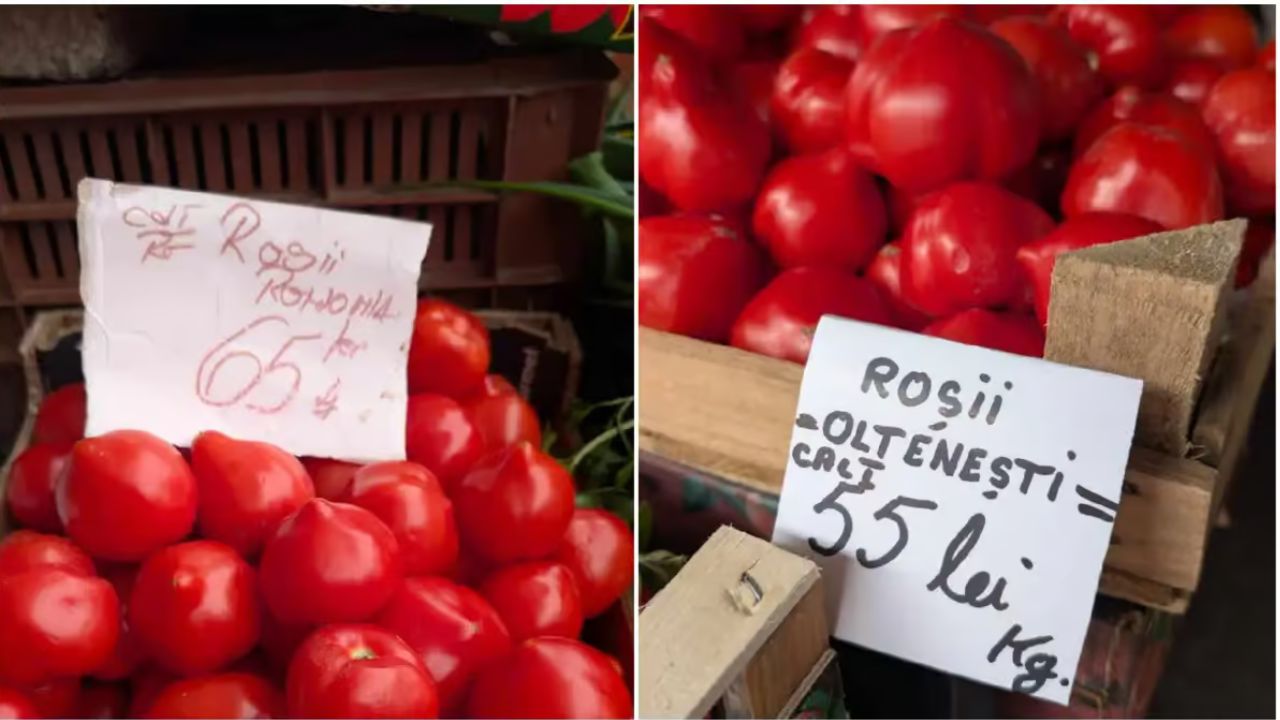 CAL I
Roșii
ROMANIA
65
Roșii
=OLTENEȘTI=
CAL I
55 lei
Kg.